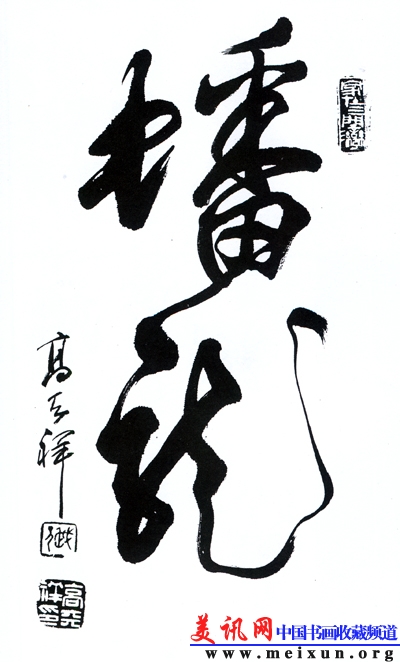 蟠龙
高天祥
高天祥印
美讯网 中国书画收藏频道
www.meixun.org